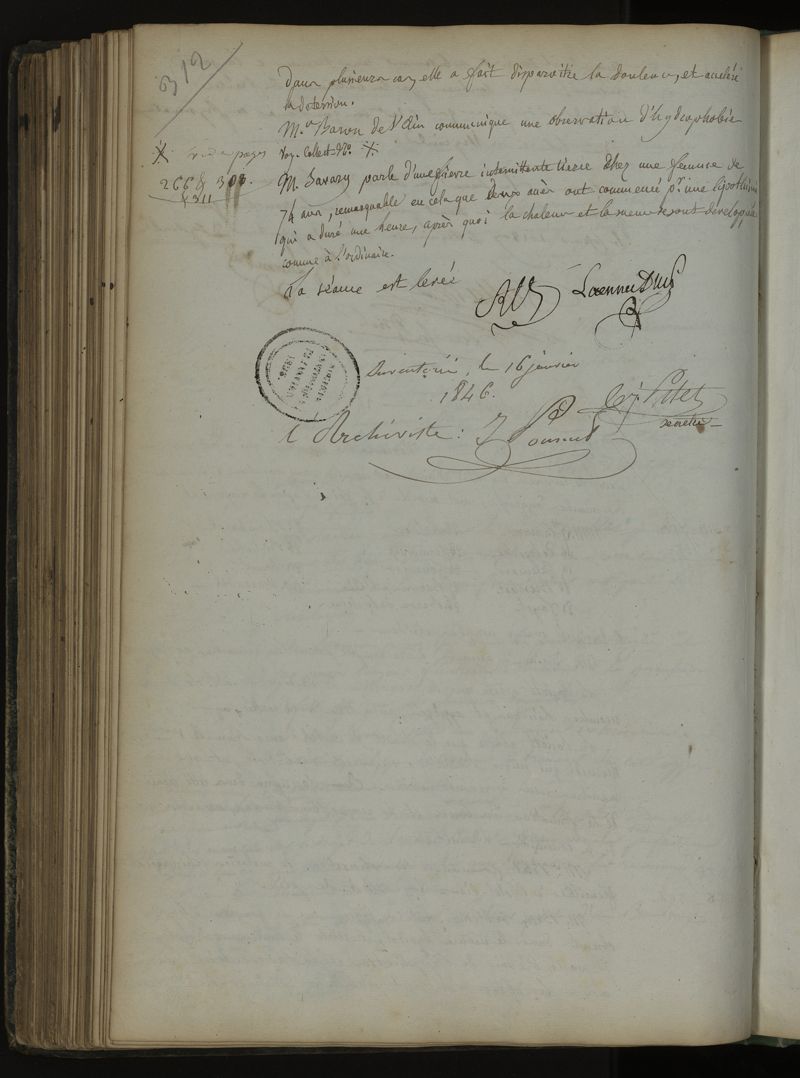 312
dans plusieurs cas, elle a fait disparoitre la douleur, et accéléré
la détersion.
Mr Baron de l'Ain communique une observation d'hydrophobie
Voy. Collect. No X.
X vide pages
266 & 308.
& 311
M. Savary parle d'une fièvre intermittente tierce chez une femme de
74 ans, remarquable en cela que deux accès ont commencé pr une lipothimie
qui a duré une heure, après quoi la chaleur et la sueur se sont développées
comme à l'ordinaire.
La séance est levée
Laennec DMP
Inventorié, le 16 janvier
1846.
secrétre
l'Archiviste :